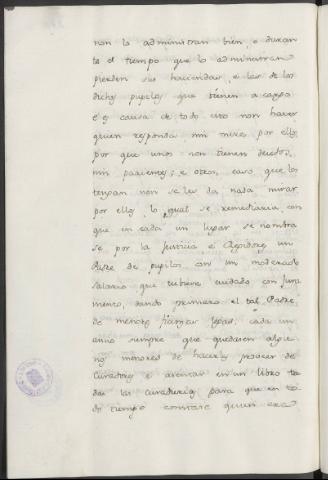 non lo administran bien, e duran
te el tiempo que lo administran
pierden sus haciendas, e las de los
dichos pupilos que tienen a cargo
é es causa de todo esto non haver
quien responda nin mire por ellos
por que unos non tienen deudos,
nin parientes; e otros, caso que los
tengan non se les da nada mirar
por ellos lo qual se remediaria con
que en cada un lugar se nombra
se por la Justicia é Regidores un
Padre de pupilos con un moderado
salario que tubiese cuidado con Jura
mento, dando primero el tal Padre
de menores fianzas legas, cada un
anno siempre que quedasen algu
nos menores de hacerles proveer de
Curadores e asentar en un libro to
das las Curadurias para que en to
do tiempo constase quien era